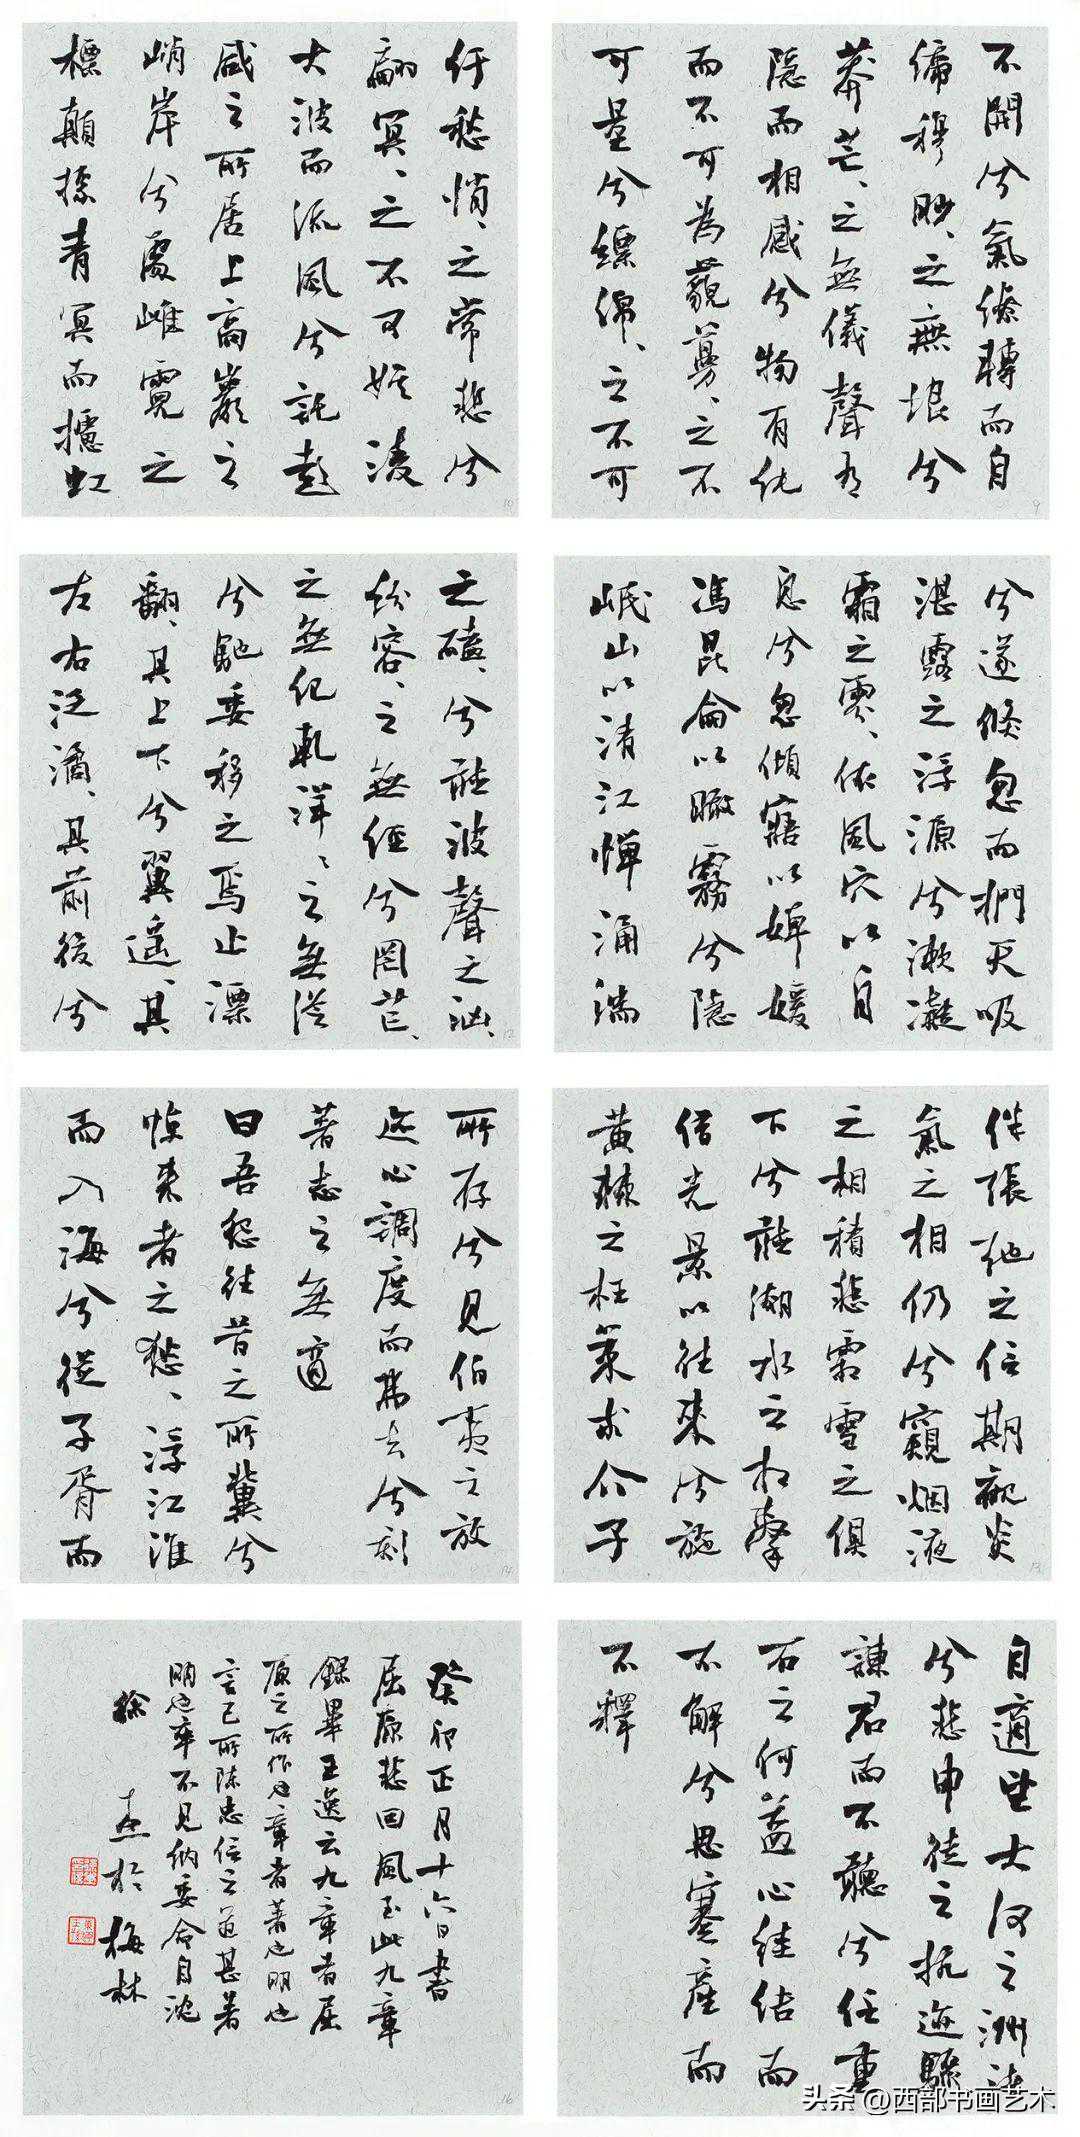 不開兮氣繚轉而自
締穆眇々之無垠兮
莽芒々之無儀聲有
隱而相感兮物有純
而不可為藐蔓々之不
可量兮縹綿々之不可
9
紆愁悄々之常悲兮
翩冥々之不可娛淩
大波而流風兮託彭
咸之所居上高巖之
峭岸兮處雌霓之
標顛據青冥而攄虹
10
兮遂倏忽而捫天吸
湛露之浮源兮漱凝
霜之雰々依風穴以自
息兮忽傾寤以嬋媛
馮昆侖以瞰霧兮隱
岷山以清江憚涌湍
11
之磕々兮聽波聲之洶々
紛容々之無經兮罔芒々
之無紀軋洋々之無從
兮馳委移之焉止漂
翻々其上下兮翼遙々其
左右泛潏々其前後兮
12
伴張弛之信期觀炎
氣之相仍兮窺烟液
之相積悲霜雪之俱
下兮聽潮水之相擊
借光景以往來兮施
黃棘之枉策求介子
13
所存兮見伯夷之放
迹心調度而弗去兮刻
著志之無適
曰吾怨往昔之所冀兮
悼來者之悐々浮江淮
而入海兮從子胥而
14
自適望大河之洲渚
兮悲申徒之抗迹驟
諫君而不聽兮任重
石之何益心絓結而
不解兮思蹇產而
不釋
癸卯正月十六日書
屈原悲回風至此九章
錄畢王逸云九章者屈
原之所作也章者著也明也
言己所陳忠信之道甚著
明也卒不見納委命自沈
徐於梅林
16
头条@西部书画艺术